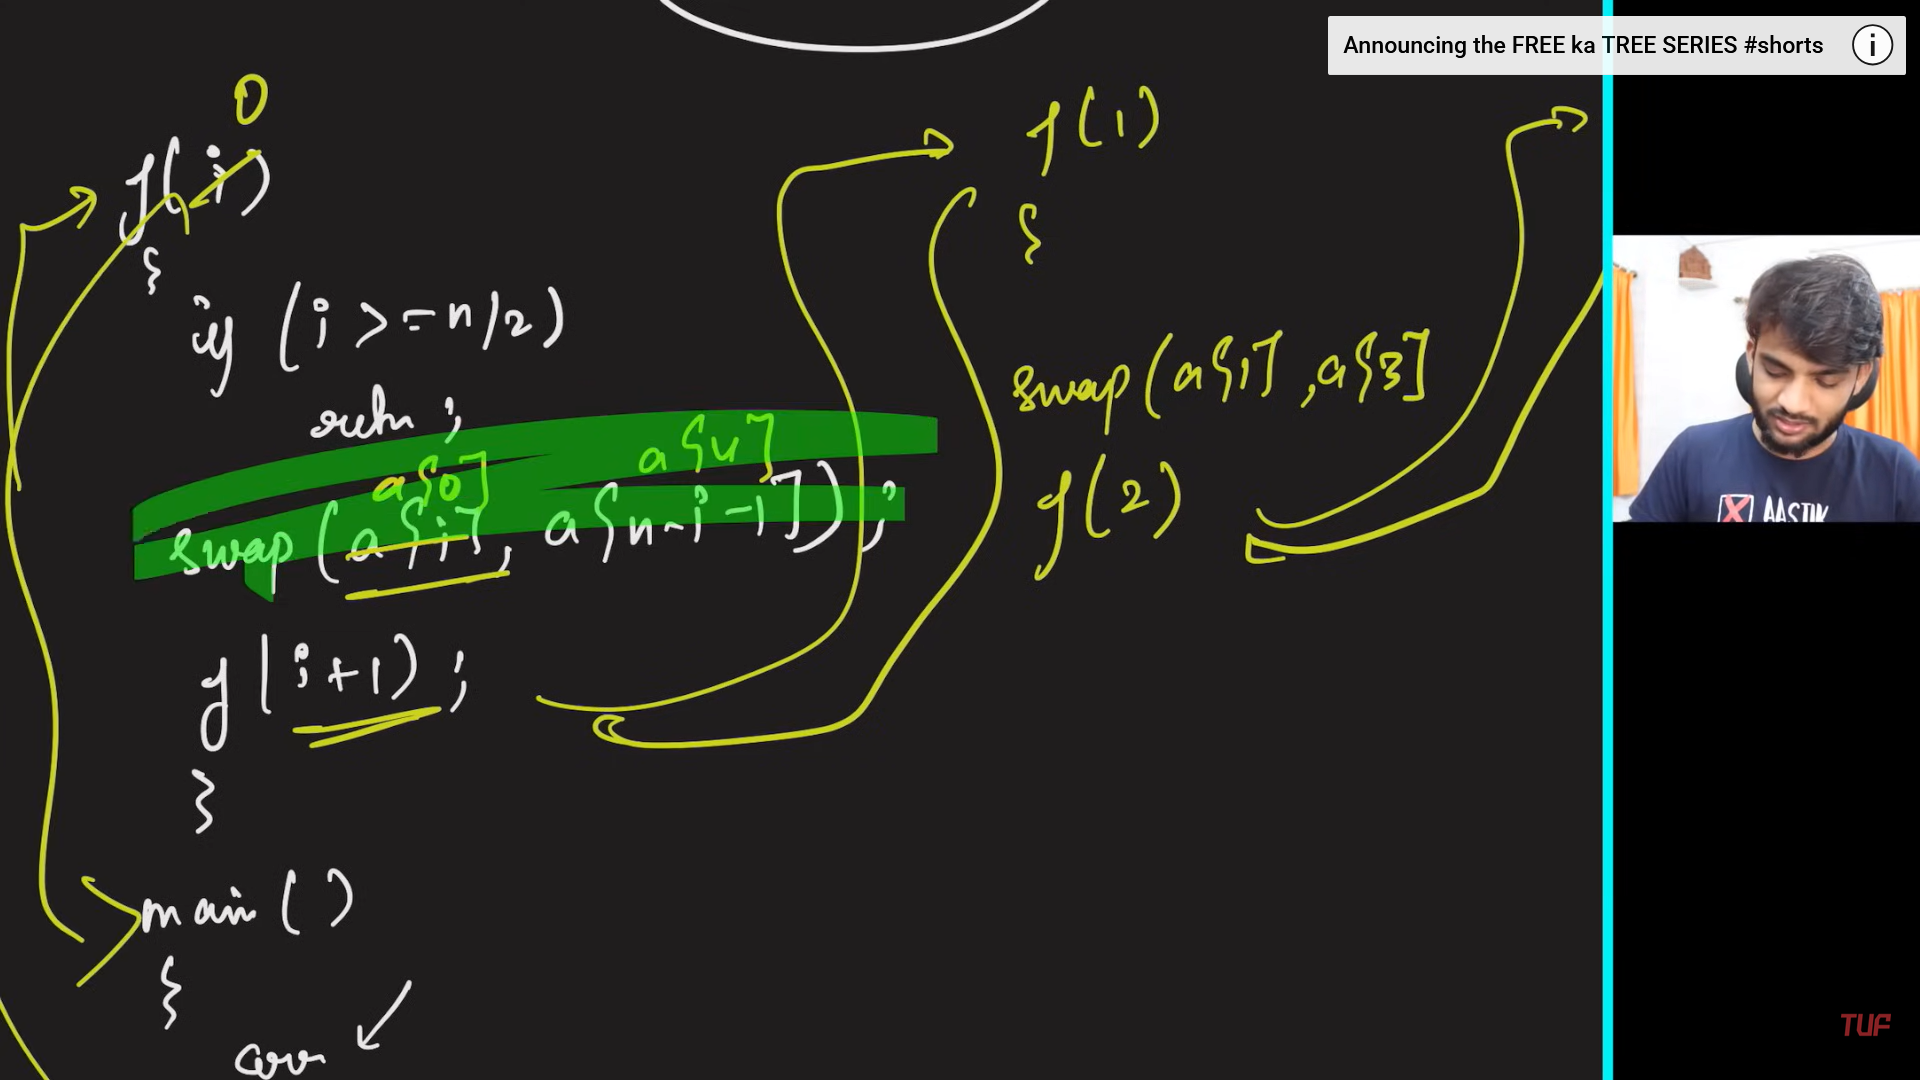 Announcing the FREE ka TREE SERIES #shorts
0
f(i)
{
if (i >= n/2)
return;
a[0] a[4]
swap(a[i], a[n-i-1]);
f(i+1);
}
main()
{
arr
f(1)
{
swap(a[1], a[3]
f(2)
AASTIK
TUF